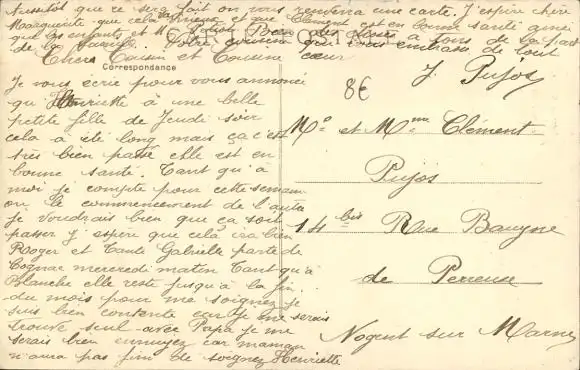 Aussitôt que ce sera fait on vous renverra une carte. J'espère chère
Marguerite que cela va mieux et que Clément est en bonne santé ainsi
que les enfants et Mme Bien des choses à tous de la part
de la famille. Votre cousine qui vous embrasse de tout
cœur
Chers Cousin et Cousine
Correspondance
Je vous écrie pour vous annoncé
qu'Henriette à une belle
petite fille de Jeudi soir
cela a été long mais ça c'est
très bien passé elle est en
bonne santé. Tant qu'à
moi je compte pour cette semaine
ou le commencement de l'autre
je voudrais bien que ça soit
passer J'espère que celà ira bien
Roger et Tante Gabrielle parte de
Cognac mercredi matin Tant qu'à
Blanche elle reste jusqu'à la fin
du mois pour me soignez je
suis bien contente car je me serais
trouvé seul avec Papa je me
serais bien ennuyez car maman
n'aura pas fini de soignez Henriette
J. Pujos
8€
Mr et Mme Clément
Pujos
14 bis Rue Bauyne
de Perreuse
Nogent sur Marne